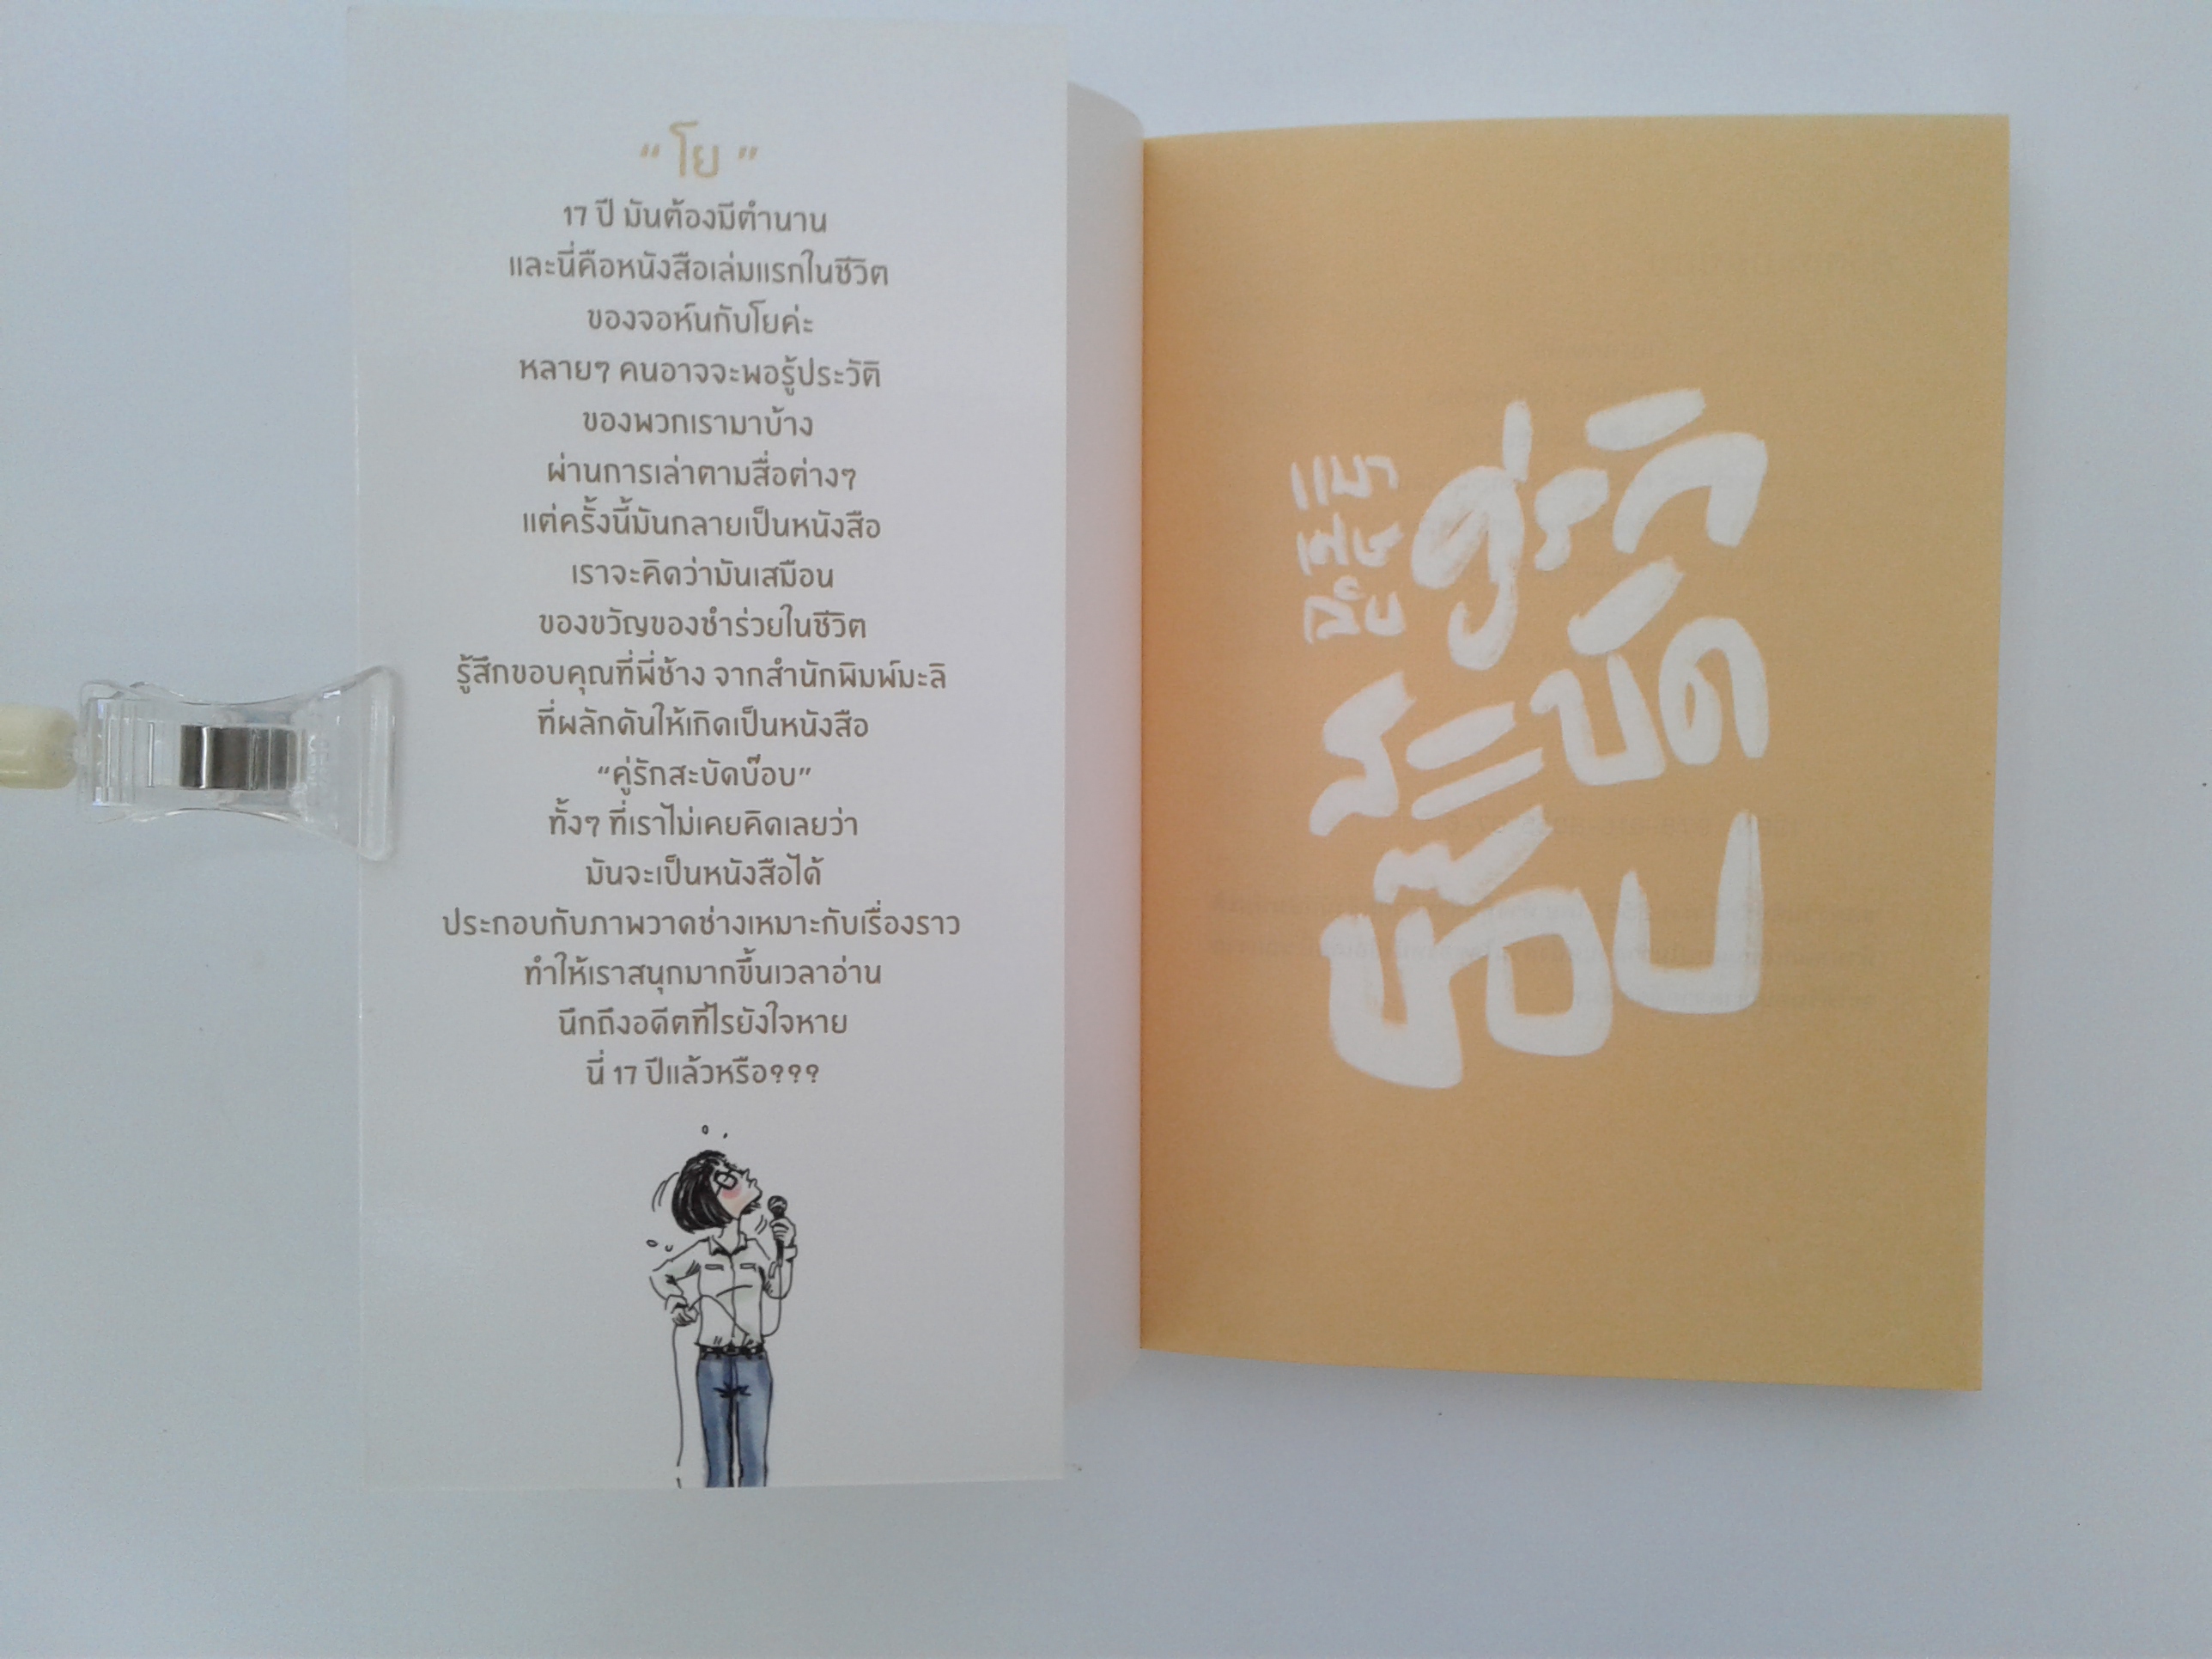 “ โย ”
17 ปี มันต้องมีตำนาน
และนี่คือหนังสือเล่มแรกในชีวิต
ของจอห์นกับโยค่ะ
หลายๆ คนอาจจะพอรู้ประวัติ
ของพวกเรามาบ้าง
ผ่านการเล่าตามสื่อต่างๆ
แต่ครั้งนี้มันกลายเป็นหนังสือ
เราจะคิดว่ามันเสมือน
ของขวัญของชำร่วยในชีวิต
รู้สึกขอบคุณที่พี่ช้าง จากสำนักพิมพ์มะลิ
ที่ผลักดันให้เกิดเป็นหนังสือ
“คู่รักสะบัดบ๊อบ”
ทั้งๆ ที่เราไม่เคยคิดเลยว่า
มันจะเป็นหนังสือได้
ประกอบกับภาพวาดช่างเหมาะกับเรื่องราว
ทำให้เราสนุกมากขึ้นเวลาอ่าน
นึกถึงอดีตทีไรยังใจหาย
นี่ 17 ปีแล้วหรือ???
คู่รัก
สะบัด
บ๊อบ